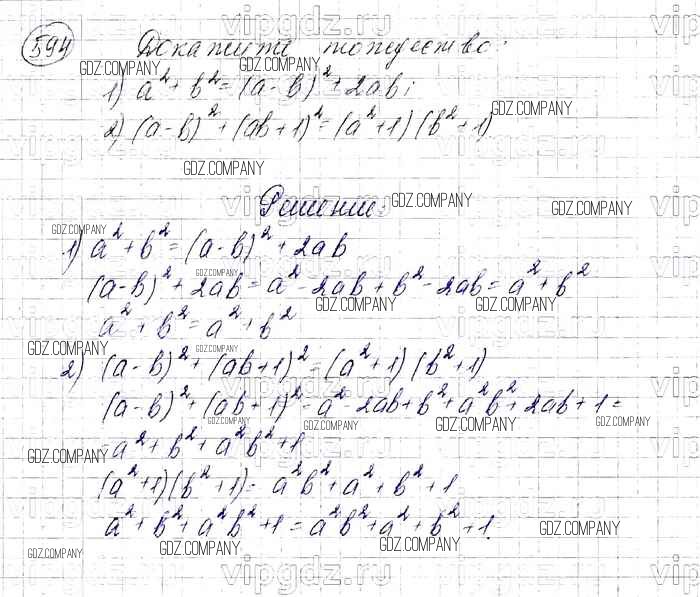 594
Докажите тождество:
1) a² + b² = (a - b)² + 2ab;
2) (a - b)² + (ab + 1)² = (a² + 1)(b² + 1)
Решение:
1) a² + b² = (a - b)² + 2ab
(a - b)² + 2ab = a² - 2ab + b² - 2ab = a² + b²
a² + b² = a² + b²
2) (a - b)² + (ab + 1)² = (a² + 1)(b² + 1)
(a - b)² + (ab + 1)² = a² - 2ab + b² + a²b² + 2ab + 1 =
= a² + b² + a²b² + 1
(a² + 1)(b² + 1) = a²b² + a² + b² + 1
a² + b² + a²b² + 1 = a²b² + a² + b² + 1.
GDZ.COMPANY
vipgdz.ru